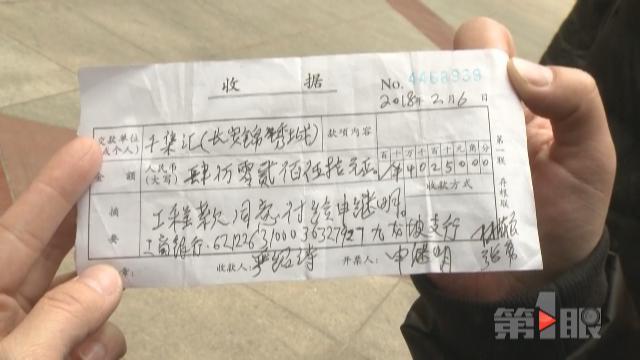 收 据
No. 4468938
2018年2月6日
交款单位(或个人) 千渠汇(长安锦绣城) 款项内容
金额 人民币(大写) 肆万零贰佰伍拾元正 百十万千百十元角分 ¥4025000
收款方式
摘要 工程款同意付给申继明。
工商银行:621226 31000 3632797 九龙坡支行
章: 收款人: 严绍涛 开票人: 申继明
第一联 存根联
第1眼